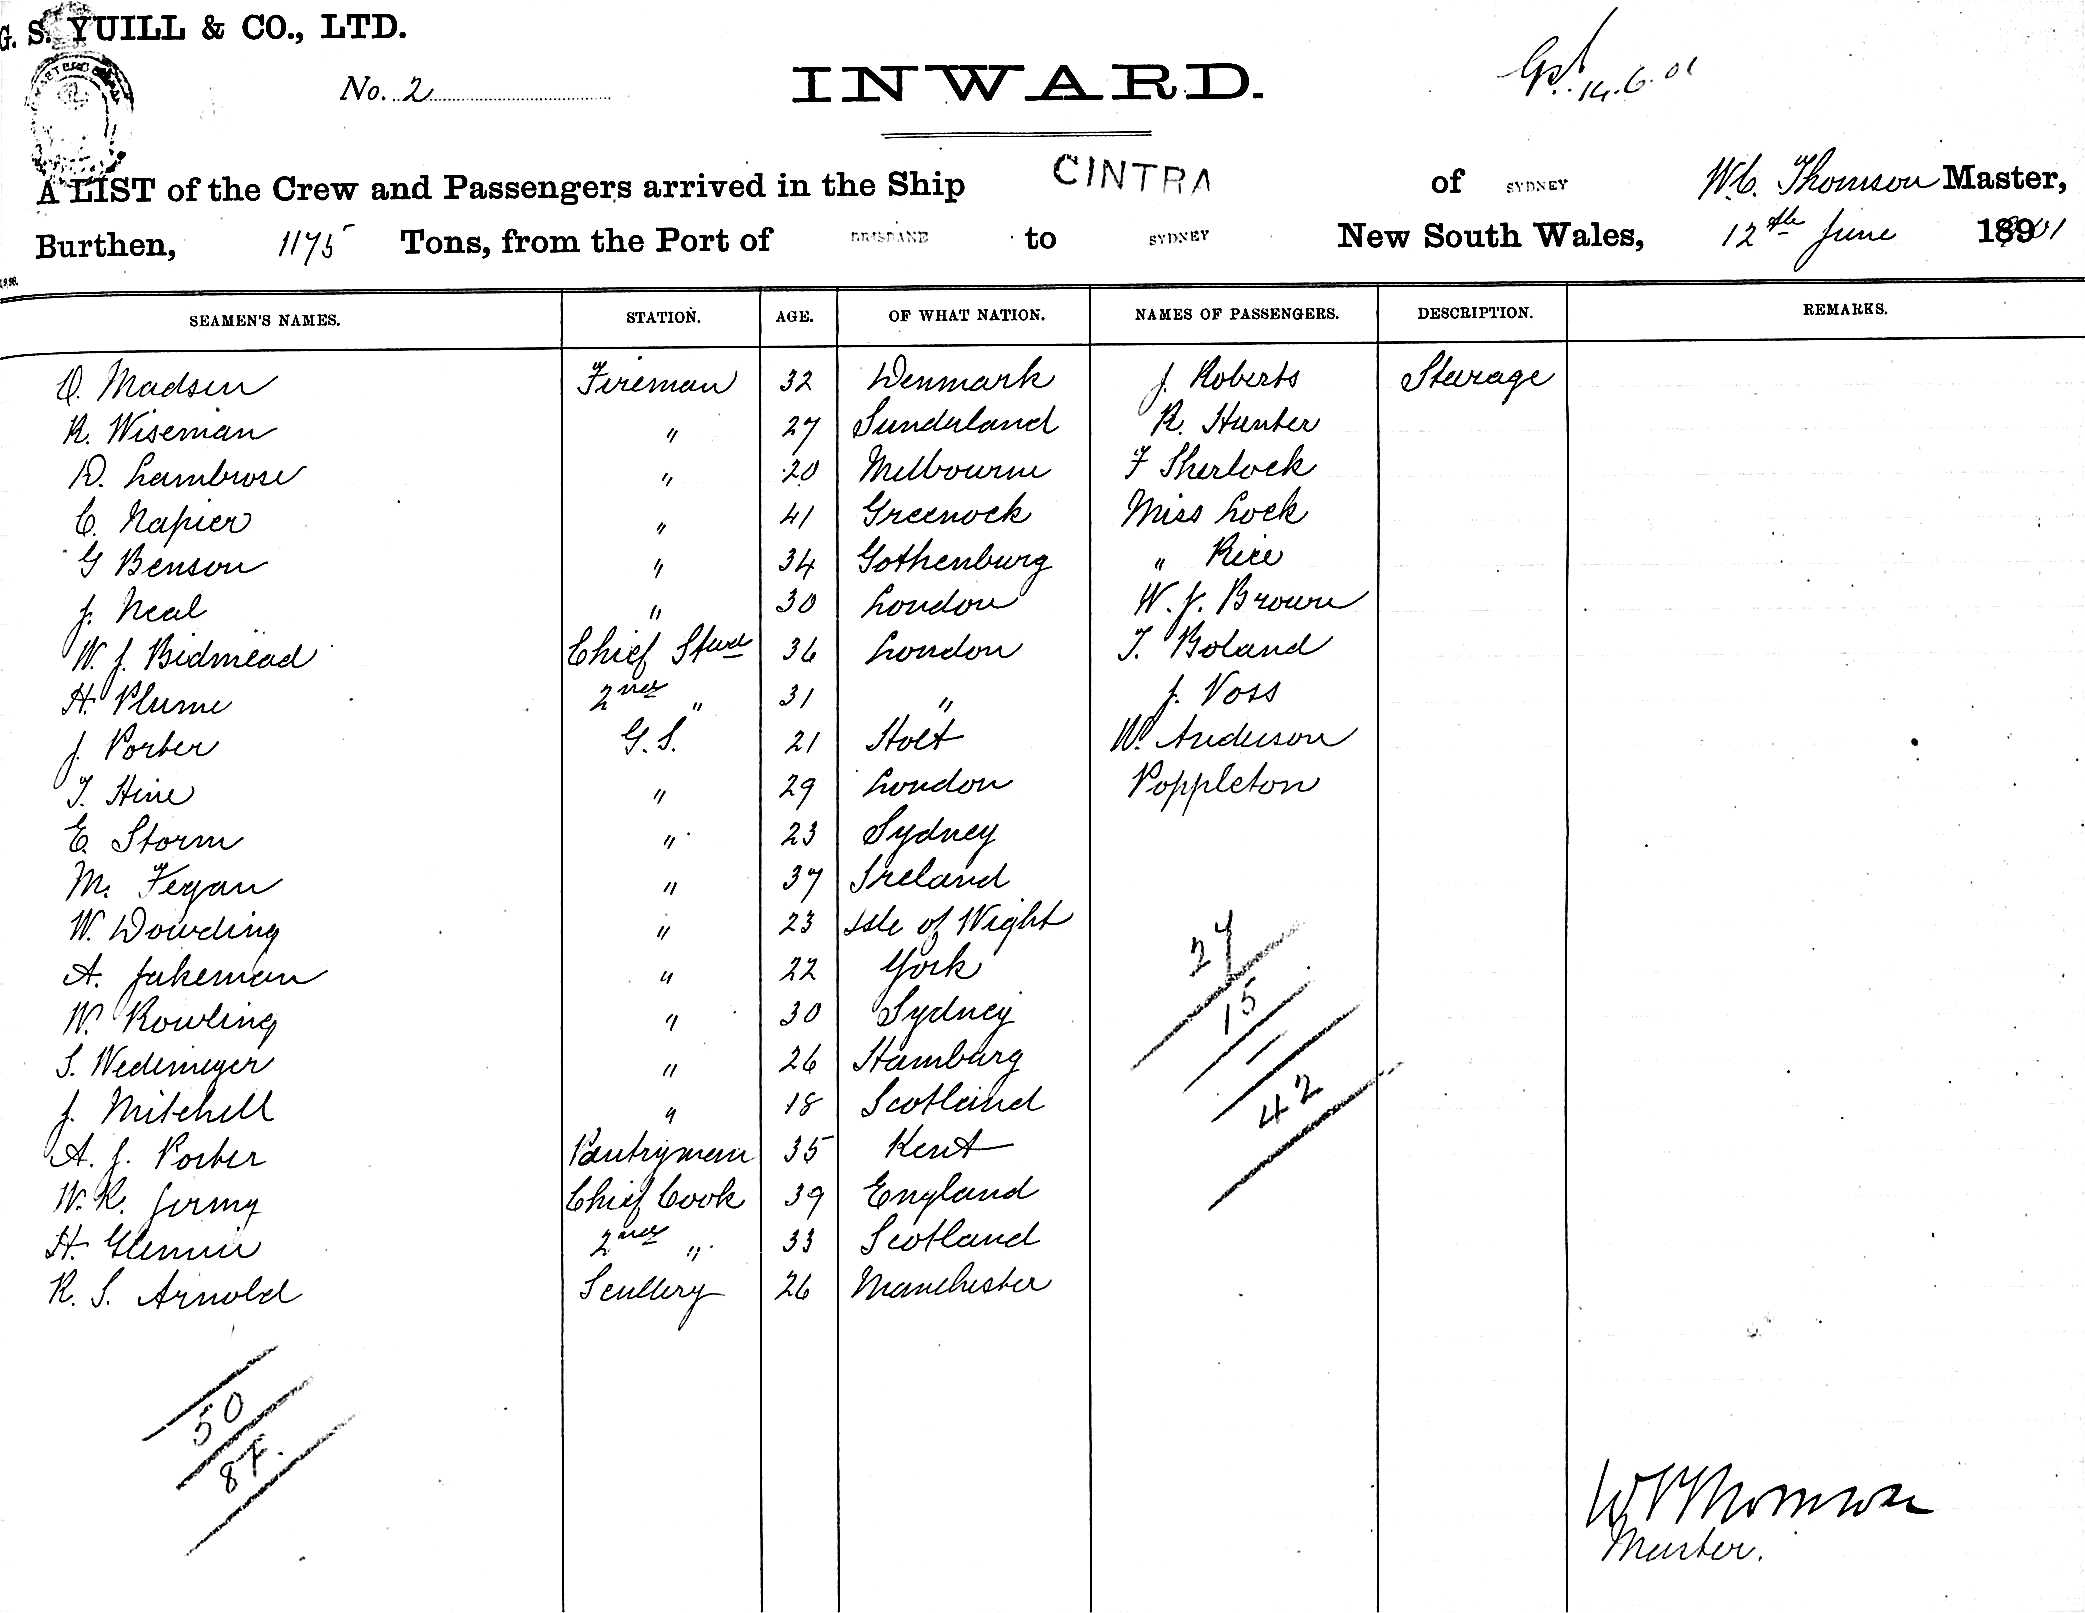 G. S. YUILL & CO., LTD.
No. 2
INWARD.
14.6.01
A LIST of the Crew and Passengers arrived in the Ship CINTRA of SYDNEY W.C. Thomson Master,
Burthen, 1175 Tons, from the Port of BRISBANE to SYDNEY New South Wales, 12th June 1901
SEAMEN'S NAMES. STATION. AGE. OF WHAT NATION. NAMES OF PASSENGERS. DESCRIPTION. REMARKS.
O. Madsen Fireman 32 Denmark J. Roberts Sturage
R. Wiseman " 27 Sunderland R. Hunter
D. Lambrose " 20 Melbourne F Sherlock
C. Napier " 41 Greenock Miss Lock
G Benson " 34 Gothenburg " Rice
J. Neal " 30 London W. J. Brown
W. J. Bidmead Chief Stwd 36 London T. Boland
H. Plume 2nd " 31 " J. Voss
J. Porter G.S. 21 Holt W. Anderson
T. Hine " 29 London Poppleton
E. Storm " 23 Sydney
M. Fegan " 37 Ireland
W. Dowding " 23 Isle of Wight
A. Jakeman " 22 York
W. Rowling " 30 Sydney
S. Wedemeyer " 26 Hamburg
J. Mitchell " 18 Scotland
A. J. Porter Pantryman 35 Kent
W. R. Jermy Chief Cook 39 England
H. Glennie 2nd " 33 Scotland
R. S. Arnold Scullery 26 Manchester
27
15
42
50
84.
W Thomson
Master.